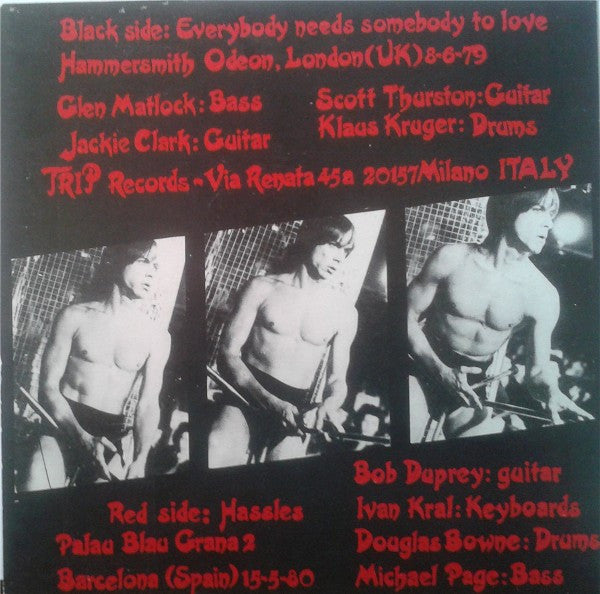 Black side: Everybody needs somebody to love
Hammersmith Odeon, London(UK)8-6-79
Glen Matlock: Bass
Scott Thurston: Guitar
Jackie Clark: Guitar
Klaus Kruger: Drums
TRIP Records - Via Renata 45a 20157 Milano ITALY
Bob Duprey: guitar
Red side: Hassles
Ivan Kral: Keyboards
Palau Blau Grana 2
Douglas Bowne: Drums
Barcelona (Spain) 15-5-80
Michael Page: Bass